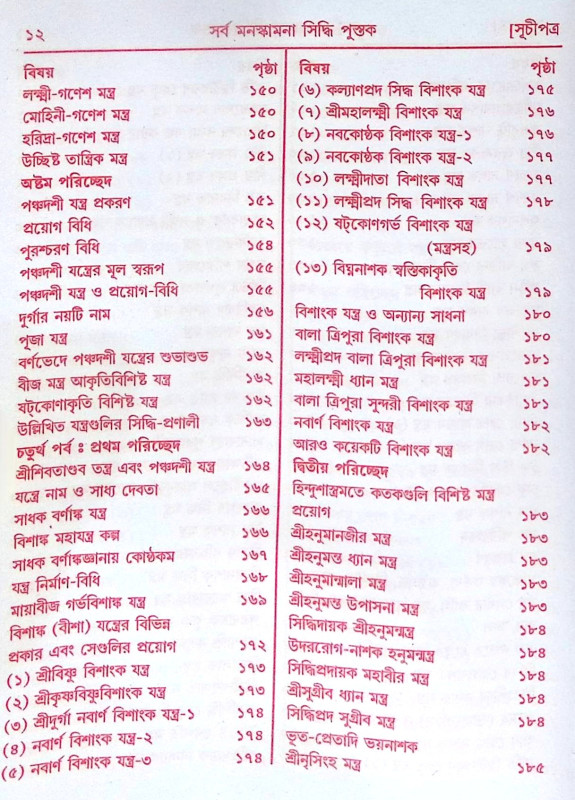 ১২ সর্ব মনস্কামনা সিদ্ধি পুস্তক [সূচীপত্র
বিষয় পৃষ্ঠা
লক্ষ্মী-গণেশ মন্ত্র ১৫০
মোহিনী-গণেশ মন্ত্র ১৫০
হরিদ্রা-গণেশ মন্ত্র ১৫০
উচ্ছিষ্ট তান্ত্রিক মন্ত্র ১৫১
অষ্টম পরিচ্ছেদ
পঞ্চদশী যন্ত্র প্রকরণ ১৫১
প্রয়োগ বিধি ১৫২
পুরশ্চরণ বিধি ১৫৪
পঞ্চদশী যন্ত্রের মূল স্বরূপ ১৫৫
পঞ্চদশী যন্ত্র ও প্রয়োগ-বিধি ১৫৫
দুর্গার নয়টি নাম ১৫৬
পূজা যন্ত্র ১৬১
বর্ণভেদে পঞ্চদশী যন্ত্রের শুভাশুভ ১৬২
বীজ মন্ত্র আকৃতিবিশিষ্ট যন্ত্র ১৬২
ষট্‌কোণাকৃতি বিশিষ্ট যন্ত্র ১৬২
উল্লিখিত যন্ত্রগুলির সিদ্ধি-প্রণালী ১৬৩
চতুর্থ পর্ব ঃ প্রথম পরিচ্ছেদ
শ্রীশিবতাণ্ডব তন্ত্র এবং পঞ্চদশী যন্ত্র ১৬৪
যন্ত্রে নাম ও সাধ্য দেবতা ১৬৫
সাধক বর্ণাঙ্ক যন্ত্র ১৬৬
বিশাঙ্ক মহাযন্ত্র কল্প ১৬৬
সাধক বর্ণাঙ্কজ্ঞানায় কোষ্ঠকম ১৬৭
যন্ত্র নির্মাণ-বিধি ১৬৮
মায়াবীজ গর্ভবিশাঙ্ক যন্ত্র ১৬৯
বিশাঙ্ক (বীশা) যন্ত্রের বিভিন্ন
প্রকার এবং সেগুলির প্রয়োগ ১৭২
(১) শ্রীবিষ্ণু বিশাংক যন্ত্র ১৭৩
(২) শ্রীকৃষ্ণবিষ্ণুবিশাংক যন্ত্র ১৭৩
(৩) শ্রীদুর্গা নবার্ণ বিশাংক যন্ত্র-১ ১৭৪
(৪) নবার্ণ বিশাংক যন্ত্র-২ ১৭৪
(৫) নবার্ণ বিশাংক যন্ত্র-৩ ১৭৪
বিষয় পৃষ্ঠা
(৬) কল্যাণপ্রদ সিদ্ধ বিশাংক যন্ত্র ১৭৫
(৭) শ্রীমহালক্ষ্মী বিশাংক যন্ত্র ১৭৬
(৮) নবকোষ্ঠক বিশাংক যন্ত্র-১ ১৭৬
(৯) নবকোষ্ঠক বিশাংক যন্ত্র-২ ১৭৭
(১০) লক্ষ্মীদাতা বিশাংক যন্ত্র ১৭৭
(১১) লক্ষ্মীপ্রদ সিদ্ধ বিশাংক যন্ত্র ১৭৮
(১২) ষট্‌কোণগর্ভ বিশাংক যন্ত্র
(মন্ত্রসহ) ১৭৯
(১৩) বিঘ্ননাশক স্বস্তিকাকৃতি
বিশাংক যন্ত্র ১৭৯
বিশাংক যন্ত্র ও অন্যান্য সাধনা ১৮০
বালা ত্রিপুরা বিশাংক যন্ত্র ১৮০
লক্ষ্মীপ্রদ বালা ত্রিপুরা বিশাংক যন্ত্র ১৮১
মহালক্ষ্মী ধ্যান মন্ত্র ১৮১
বালা ত্রিপুরা সুন্দরী বিশাংক যন্ত্র ১৮১
নবার্ণ বিশাংক যন্ত্র ১৮২
আরও কয়েকটি বিশাংক যন্ত্র ১৮২
দ্বিতীয় পরিচ্ছেদ
হিন্দুশাস্ত্রমতে কতকগুলি বিশিষ্ট মন্ত্র
প্রয়োগ ১৮৩
শ্রীহনুমানজীর মন্ত্র ১৮৩
শ্রীহনুমন্ত ধ্যান মন্ত্র ১৮৩
শ্রীহনুমান্মালা মন্ত্র ১৮৩
শ্রীহনুমন্ত উপাসনা মন্ত্র ১৮৩
সিদ্ধিদায়ক শ্রীহনুমন্মন্ত্র ১৮৪
উদররোগ-নাশক হনুমন্মন্ত্র ১৮৪
সিদ্ধিপ্রদায়ক মহাবীর মন্ত্র ১৮৪
শ্রীসুগ্রীব ধ্যান মন্ত্র ১৮৪
সিদ্ধিপ্রদ সুগ্রীব মন্ত্র ১৮৪
ভূত-প্রেতাদি ভয়নাশক
শ্রীনৃসিংহ মন্ত্র ১৮৫